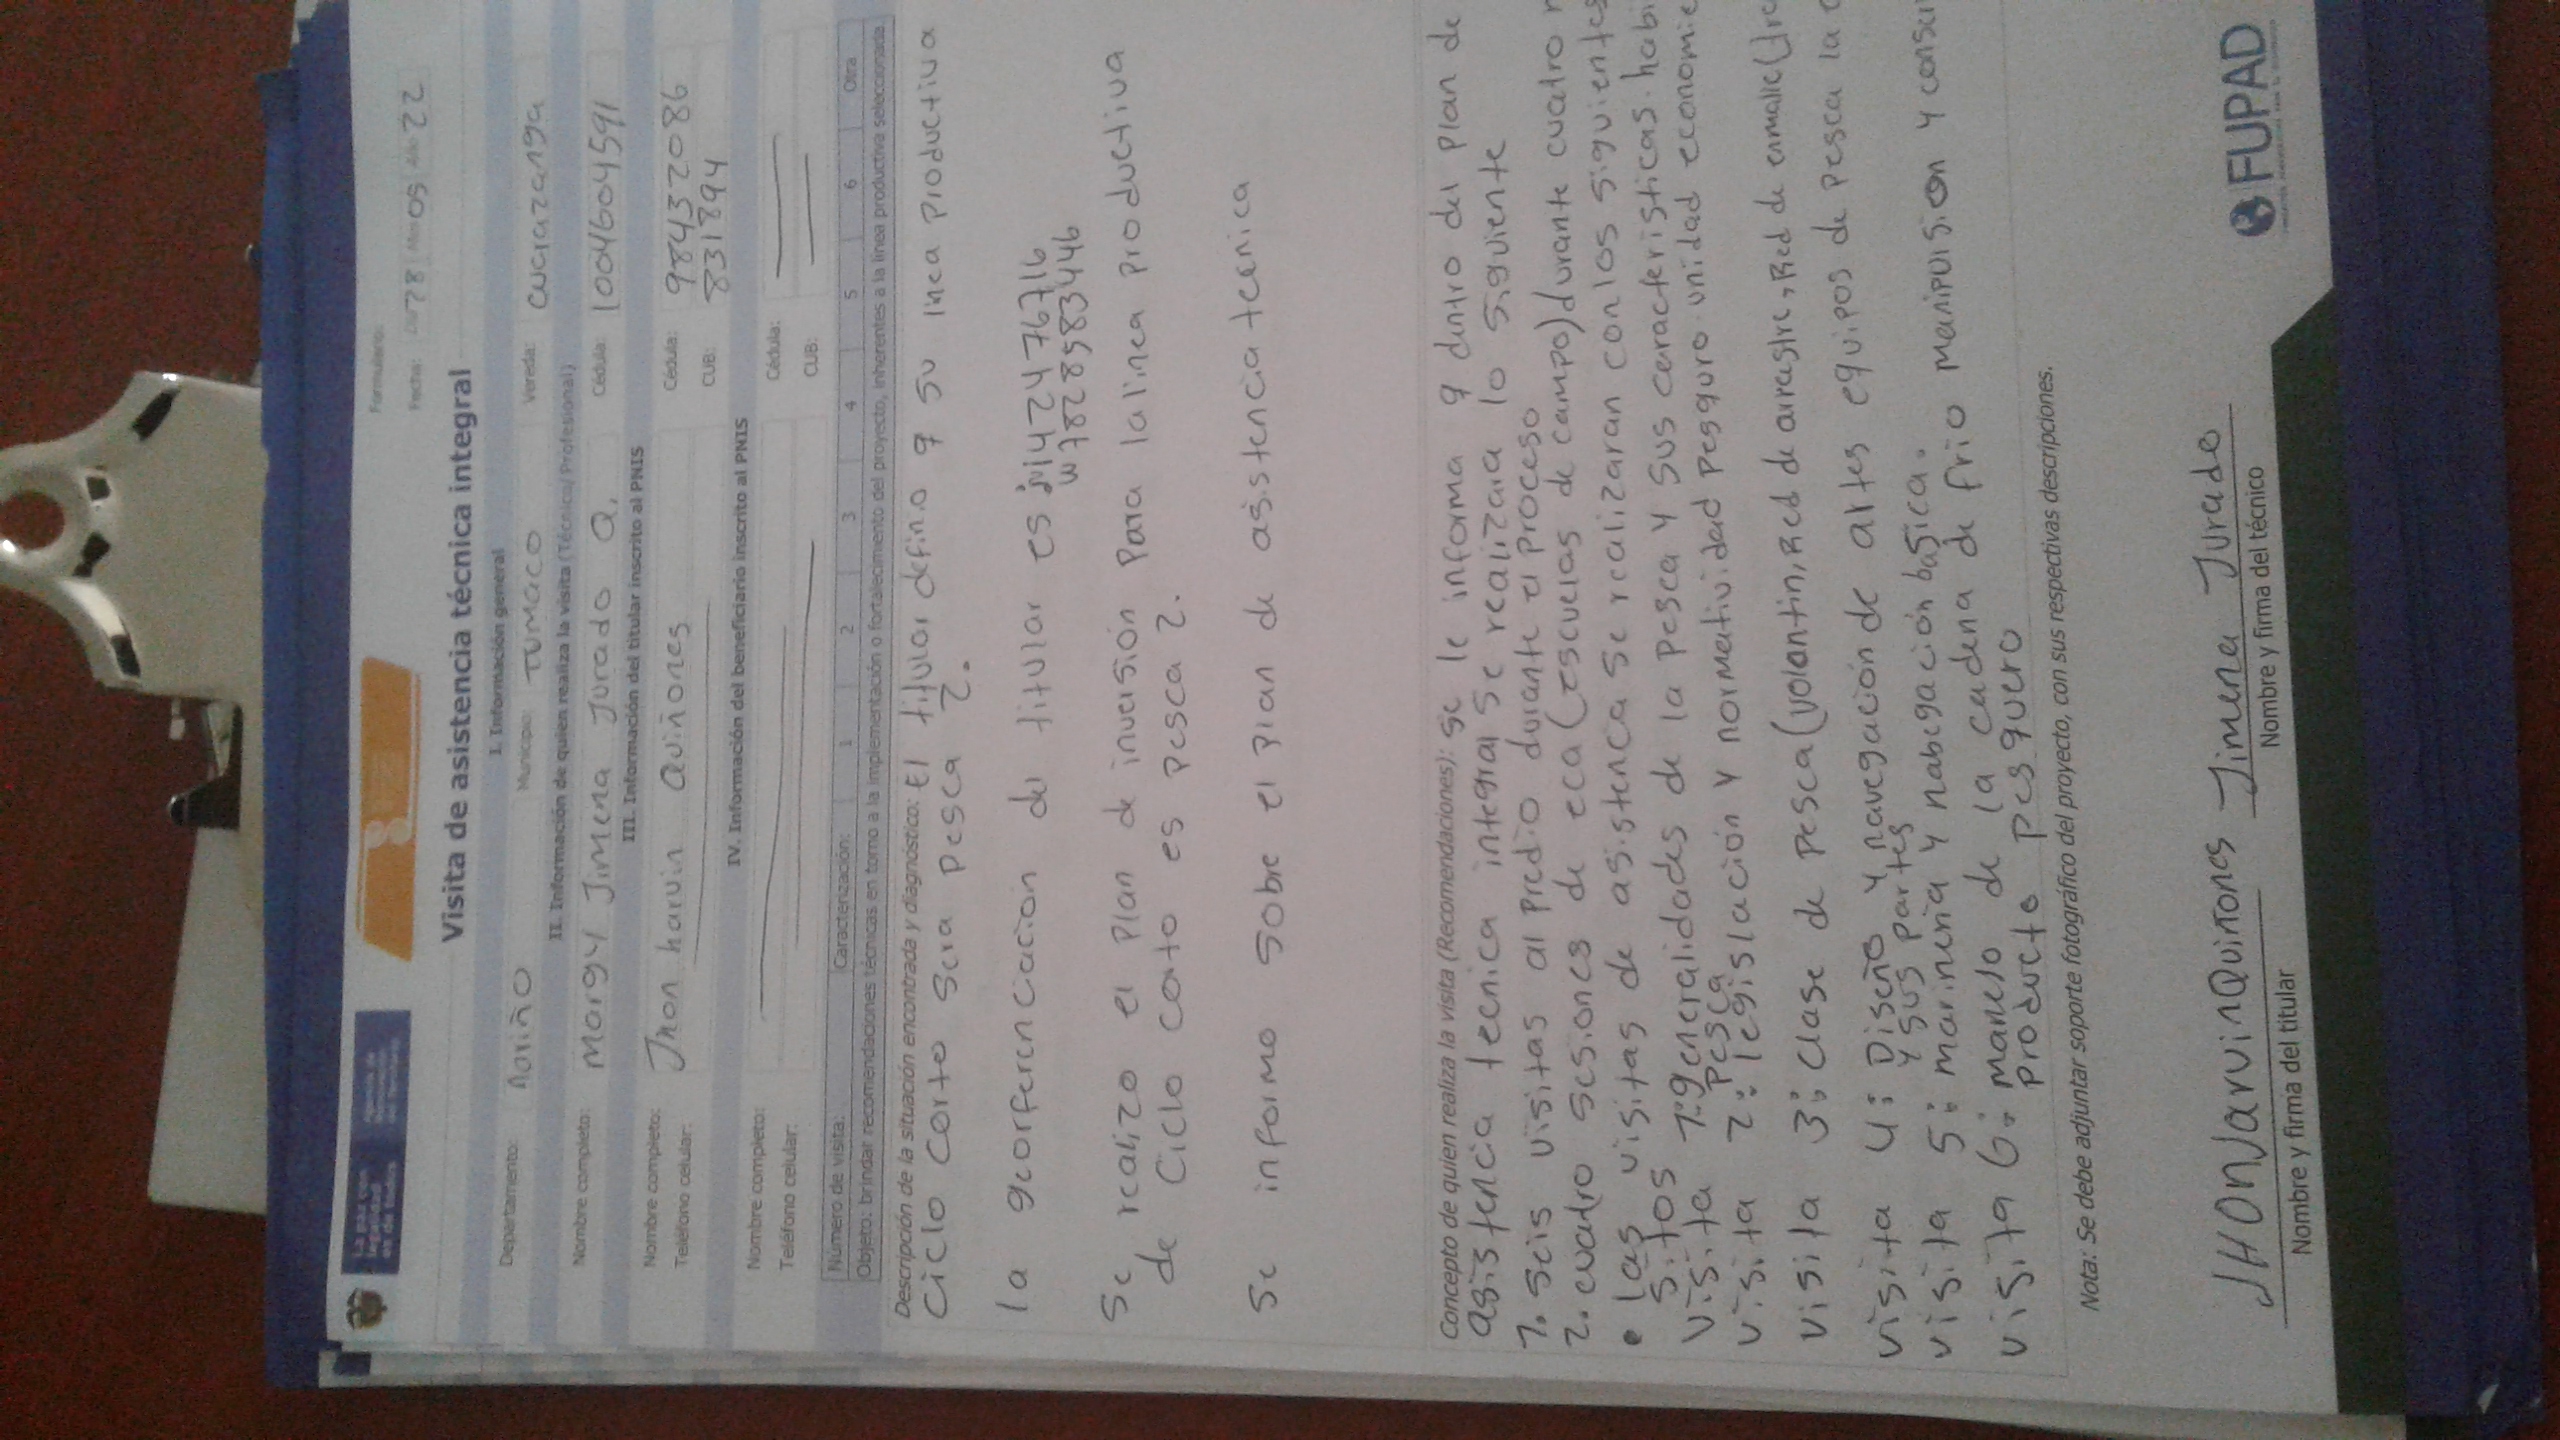 La paz con legalidad es de todos
Formulario:
Fecha: 28 Mes 05 Año 22
Visita de asistencia técnica integral
I. Información general
Departamento: Nariño Municipio: TUMACO Vereda:
II. Información de quien realiza la visita (Técnica/Profesional)
Nombre completo: Morgy Jimena Jurado Q. Cédula: 1004604591
III. Información del titular inscrito al PNIS
Nombre completo: Jhon harvin Quiñones Cédula: 984372086
Teléfono celular: CUB: 831894
IV. Información del beneficiario inscrito al PNIS
Nombre completo: Cédula:
Teléfono celular: CUB:
Número de visita: Caracterización: 1 2 3 4 5 6 Otra
Objeto: brindar recomendaciones técnicas en torno a la implementación o fortalecimiento del proyecto, inherentes a la línea productiva seleccionada
Descripción de la situación encontrada y diagnóstico: El titular defino q su linea Productiva
Ciclo corto sera pesca 2.
la georferenciacion del titular es N142476716
W7828583446
Se realizo el plan de inversión Para la linea productiva
de Ciclo corto es pesca 2.
Se informo sobre el plan de asistencia tecnica
Concepto de quien realiza la visita (Recomendaciones): se le informa q dentro del plan de
asistencia tecnica integral se realizara lo siguiente
1. seis visitas al predio durante el proceso
2. cuatro sesiones de eca (escuelas de campo) durante cuatro
• las visitas de asistenca se realizaran con los siguientes
sitos
visita 1: generalidades de la pesca y sus caracteristicas. habi
pesca
visita 2: legislación y normatividad pesquro. unidad economie
visita 3: clase de pesca (volantin, Red de arrastre, Red de enmalle (tre
visita 4: Diseño y navegación de artes equipos de pesca la
y sus partes
visita 5: marineria y nabegación basica.
visita 6: manejo de la cadena de frio manipulsion y conser
producto pesquero
Nota: Se debe adjuntar soporte fotográfico del proyecto, con sus respectivas descripciones.
JHONJarvinQuiñones
Nombre y firma del titular
Jimena Jurado
Nombre y firma del técnico
FUPAD